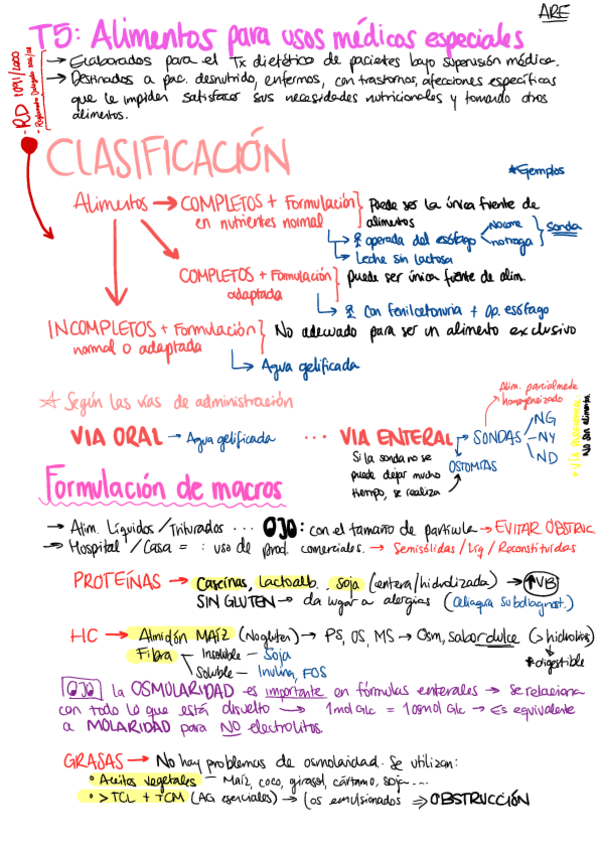 ARE
T5: Alimentos para usos médicos especiales
→ Elaborados para el Tx dietético de pacientes bajo supervisión médica.
→ Destinados a pac. desnutrido, enfermos, con trastornos, afecciones específicas
que le impiden satisfacer sus necesidades nutricionales y tomando otros
alimentos.
- RD 1091/2000
- Reglamento Delegado
CLASIFICACIÓN
*Ejemplos
Alimentos → COMPLETOS + Formulación
en nutrientes normal
Puede ser la única fuente de
alimentos
operada del esófago
No come
no traga
Sonda
Leche sin lactosa
COMPLETOS + Formulación
adaptada
Puede ser única fuente de alim.
Con fenilcetonuria + Op. esófago
INCOMPLETOS + Formulación
normal o adaptada
No adecuado para ser un alimento exclusivo
Agua gelificada
☆ Según las vías de administración
Alim. parcialmente
homogeneizado
VIA ORAL → Agua gelificada ... VIA ENTERAL → SONDAS
NG
NY
ND
OSTOMIAS
Si la sonda no se
puede dejar mucho
tiempo, se realiza
No son alimento
Formulación de macros
→ Alim. Líquidos / Triturados ... OJO: con el tamaño de partícula → EVITAR OBSTRUC.
→ Hospital / Casa = : uso de prod. comerciales. → Semisólidas / Líq / Reconstituidas
PROTEÍNAS → Caseínas, lactoalb... Soja (entera/hidrolizada) → ↑VB
SIN GLUTEN → da lugar a alergias (Celiaquía subdiagnost.)
HC → Almidón MAÍZ (No gluten) → PS, OS, MS → Osm, sabor dulce (> hidrólisis)
*digestible
Fibra
Insoluble - Soja
Soluble - Inulina, FOS
OJO la OSMOLARIDAD es importante en fórmulas enterales → Se relaciona
con todo lo que está disuelto → 1mol Glc = 1osmol Glc → Es equivalente
a MOLARIDAD para NO electrolitos.
GRASAS → No hay problemas de osmolaridad. Se utilizan:
• Aceites vegetales - Maíz, coco, girasol, cártamo, soja...
• > TCL + TCM (AG esenciales) → Los emulsionados ⇒ OBSTRUCCIÓN